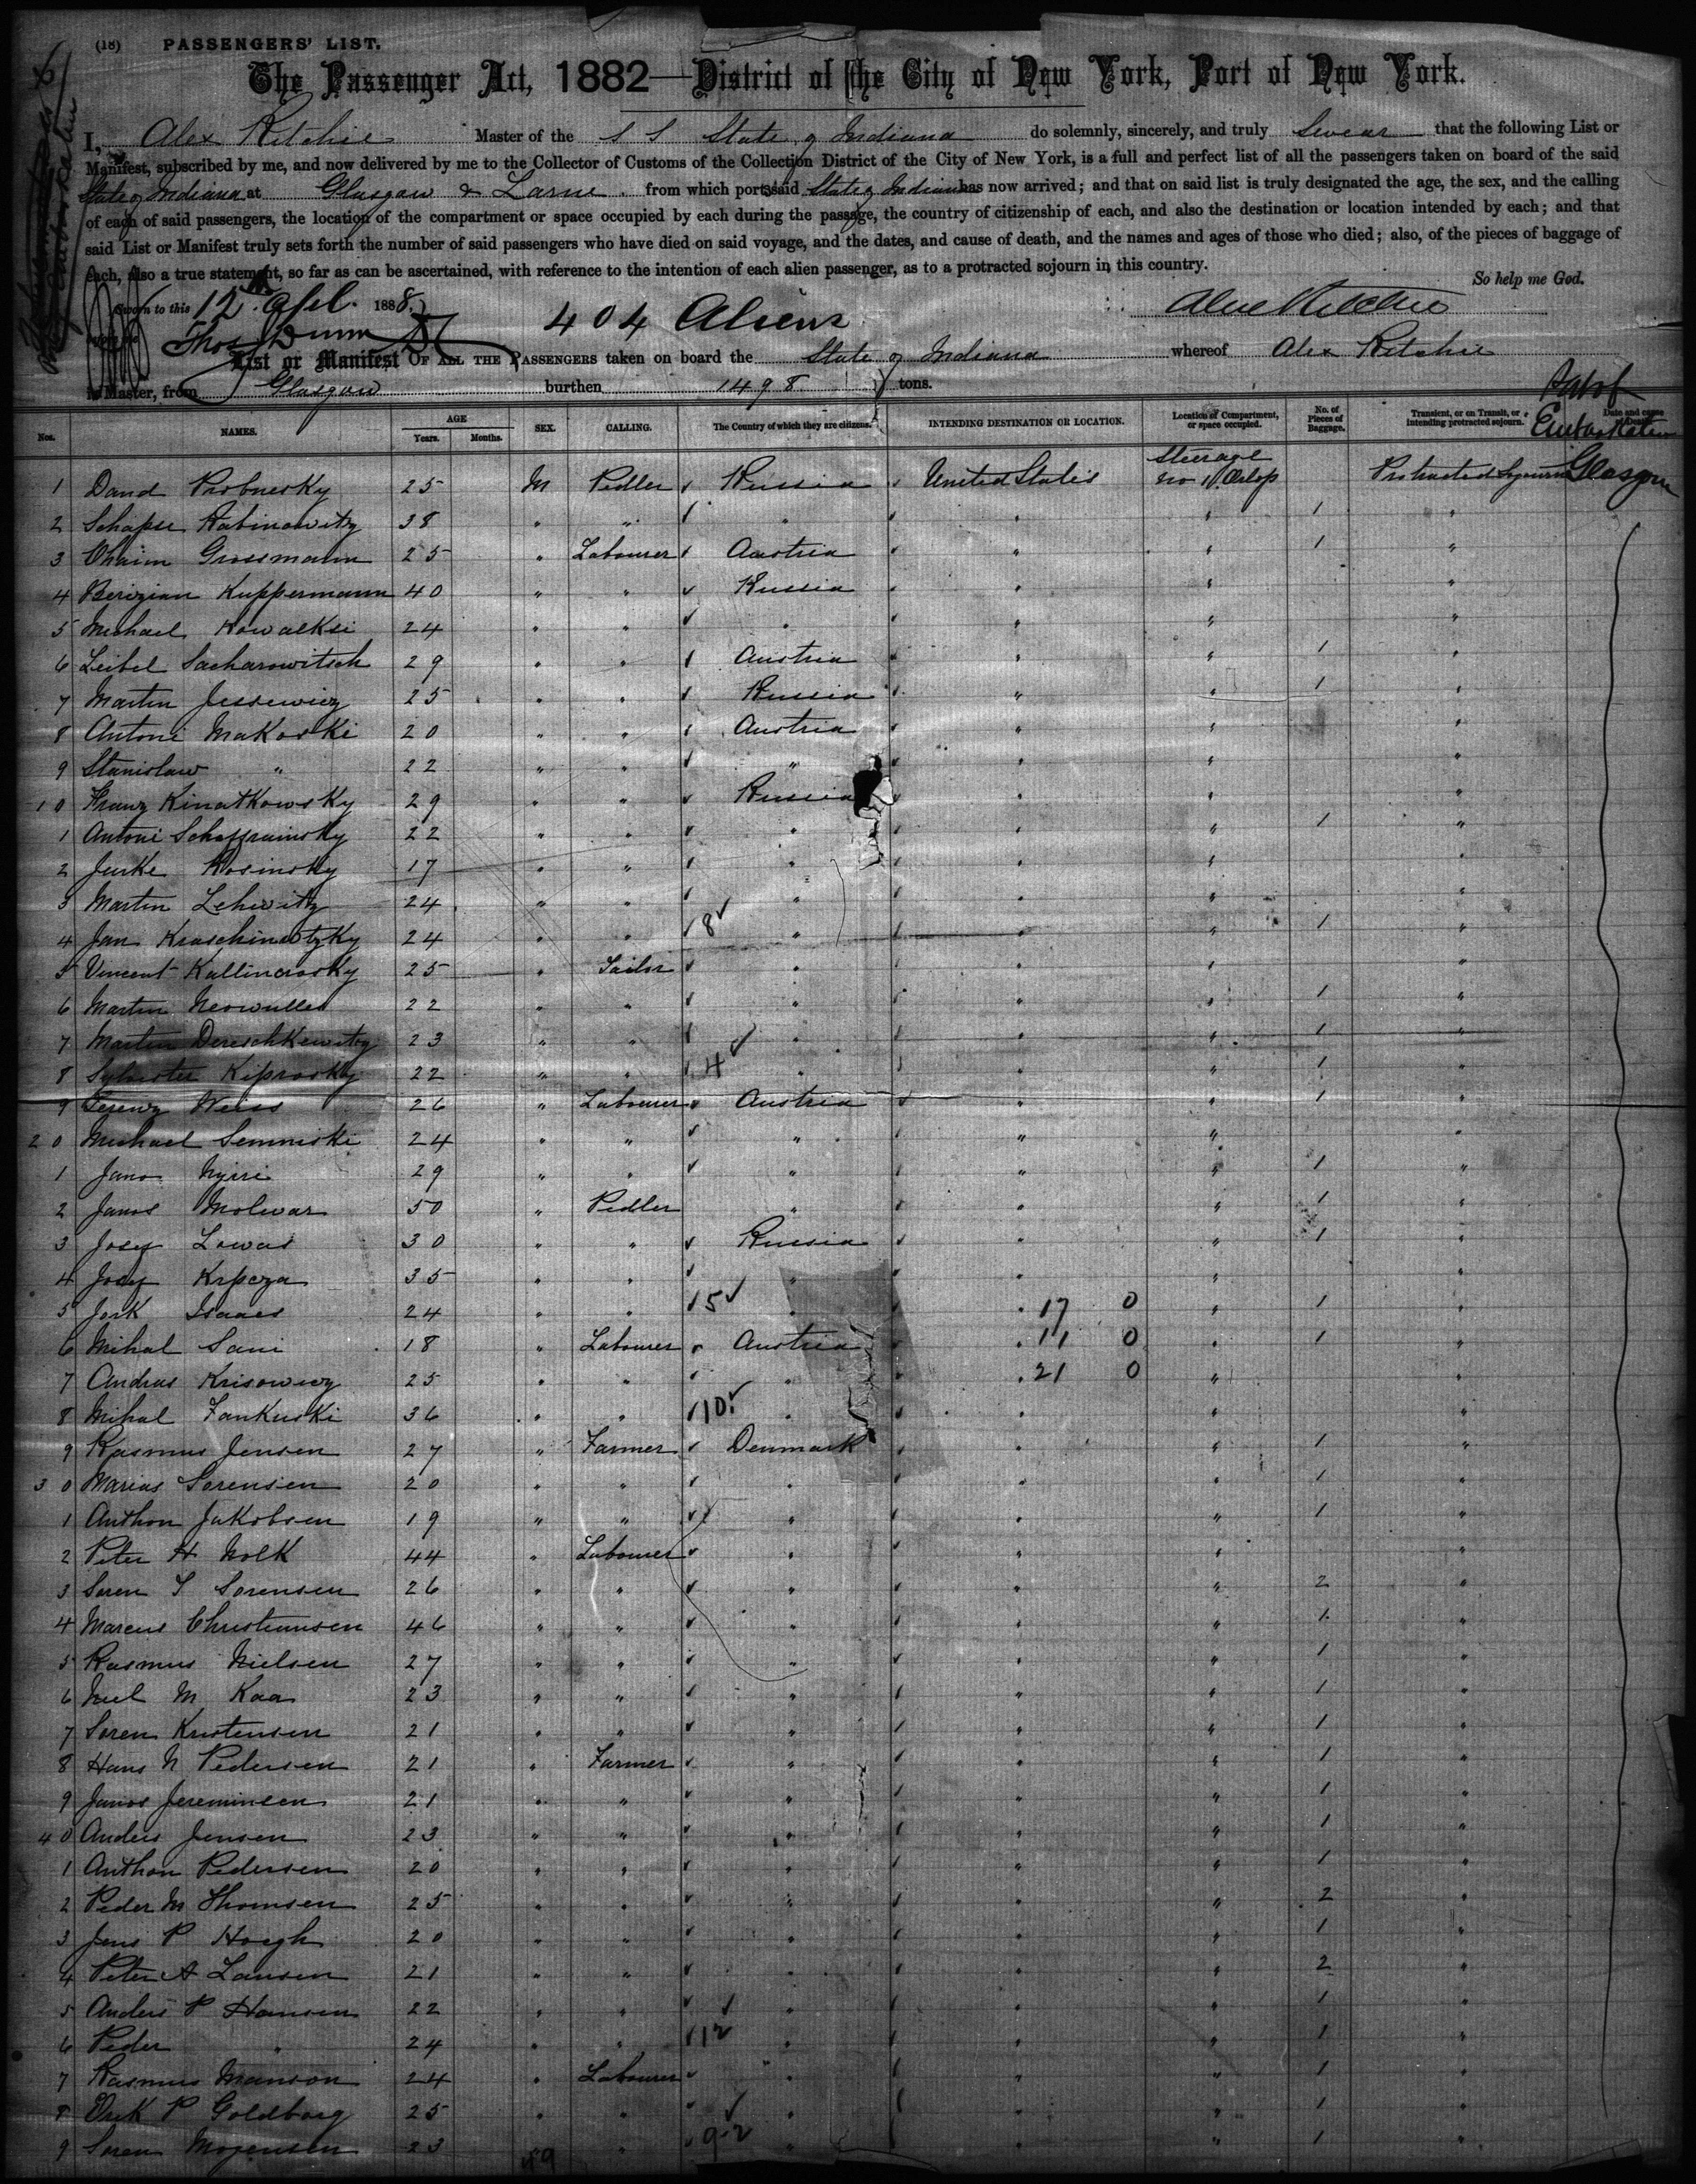 (18) PASSENGERS' LIST.
The Passenger Act, 1882—District of the City of New York, Port of New York.
I, Alex Ritchie Master of the S S State of Indiana do solemnly, sincerely, and truly Swear that the following List or
Manifest, subscribed by me, and now delivered by me to the Collector of Customs of the Collection District of the City of New York, is a full and perfect list of all the passengers taken on board of the said
State of Indiana at Glasgow & Larne from which port said State of Indiana has now arrived; and that on said list is truly designated the age, the sex, and the calling
of each of said passengers, the location of the compartment or space occupied by each during the passage, the country of citizenship of each, and also the destination or location intended by each; and that
said List or Manifest truly sets forth the number of said passengers who have died on said voyage, and the dates, and cause of death, and the names and ages of those who died; also, of the pieces of baggage of
each, also a true statement, so far as can be ascertained, with reference to the intention of each alien passenger, as to a protracted sojourn in this country.
So help me God.
Sworn to this 12 Apl. 1888
404 Aliens
Alex Ritchie
Thos Dunn
List or Manifest OF ALL THE PASSENGERS taken on board the State of Indiana whereof Alex Ritchie
is Master, from Glasgow burthen 1498 tons.
Nos. NAMES. AGE Years. Months. SEX. CALLING. The Country of which they are citizens. INTENDING DESTINATION OR LOCATION. Location of Compartment, or space occupied. No. of Pieces of Baggage. Transient, or on Transit, or intending protracted sojourn. Date and cause of Death. Embarkation
Steerage
1 25 M Pedler Russia United States No 1 Orlop Protracted Sojourn Glasgow
2 Schapse Rabinowitz 38 " " " " " 1 "
3 Chaim Grossmann 25 " Labourer Austria " " 1 "
4 Kuppermann 40 " " Russia " " "
5 Michael Kowalksi 24 " " " " " "
6 Leibel Sacharowitsch 29 " " Austria " " 1 "
7 Martin Jessewicz 25 " " Russia " " 1 "
8 Antoni Makoski 20 " " Austria " " "
9 Stanislaw " 22 " " " " " "
10 Franz Kinatkowsky 29 " " Russia " " "
1 Antoni 22 " " " " " 1 "
2 Jurke Rosinsky 17 " " " " " "
3 Martin Lehwitz 24 " " " " " "
4 Jan 24 " " 8 " " " 1 "
5 Vincent 25 " Tailor " " " "
6 Martin 22 " " " " " 1 "
7 Martin Dereschkewitz 23 " " " " " 1 "
8 Sylvester 22 " " 4 " " " 1 "
9 Ferenz Weiss 26 " Labourer Austria " " 1 "
20 Michael Semniski 24 " " " " " "
1 Jano Nyiri 29 " " " " " 1 "
2 Janos Molwar 50 " Pedler " " " 1 "
3 Josef Lowas 30 " " Russia " " 1 "
4 Josef 35 " " " " " "
5 Jork Isaacs 24 " " 5 " " 17 0 " 1 "
6 Mihal Sani 18 " Labourer Austria " 11 0 " 1 "
7 Andras Krisowicz 25 " " " " 21 0 " "
8 Mihal Fankuski 36 " " 10 " " " "
9 Rasmus Jensen 27 " Farmer Denmark " " 1 "
30 Marius Sorensen 20 " " " " " 1 "
1 Anthon Jakobsen 19 " " " " " 1 "
2 Peter H Nolk 44 " Labourer " " " "
3 Soren S Sorensen 26 " " " " " 2 "
4 Marcus Christiansen 46 " " " " " 1 "
5 Rasmus Nielsen 27 " " " " " 1 "
6 Niel M Kaa 23 " " " " " 1 "
7 Soren Kristensen 21 " " " " " 1 "
8 Hans N Pedersen 21 " Farmer " " " 1 "
9 Janos Jereminsen 21 " " " " " 1 "
40 Anders Jensen 23 " " " " " 1 "
1 Anthon Pedersen 20 " " " " " 1 "
2 Peder M Thomsen 25 " " " " " 2 "
3 Jens P Hoegh 20 " " " " " 1 "
4 Peter A Lausen 21 " " " " " 2 "
5 Anders P Hansen 22 " " " " " 1 "
6 Peder " 24 " " 12 " " " 1 "
7 Rasmus Manson 24 " Labourer " " " 1 "
8 Erik P Goldborg 25 " " " " " 1 "
9 Soren Mogensen 23 " " " " " 1 "
49